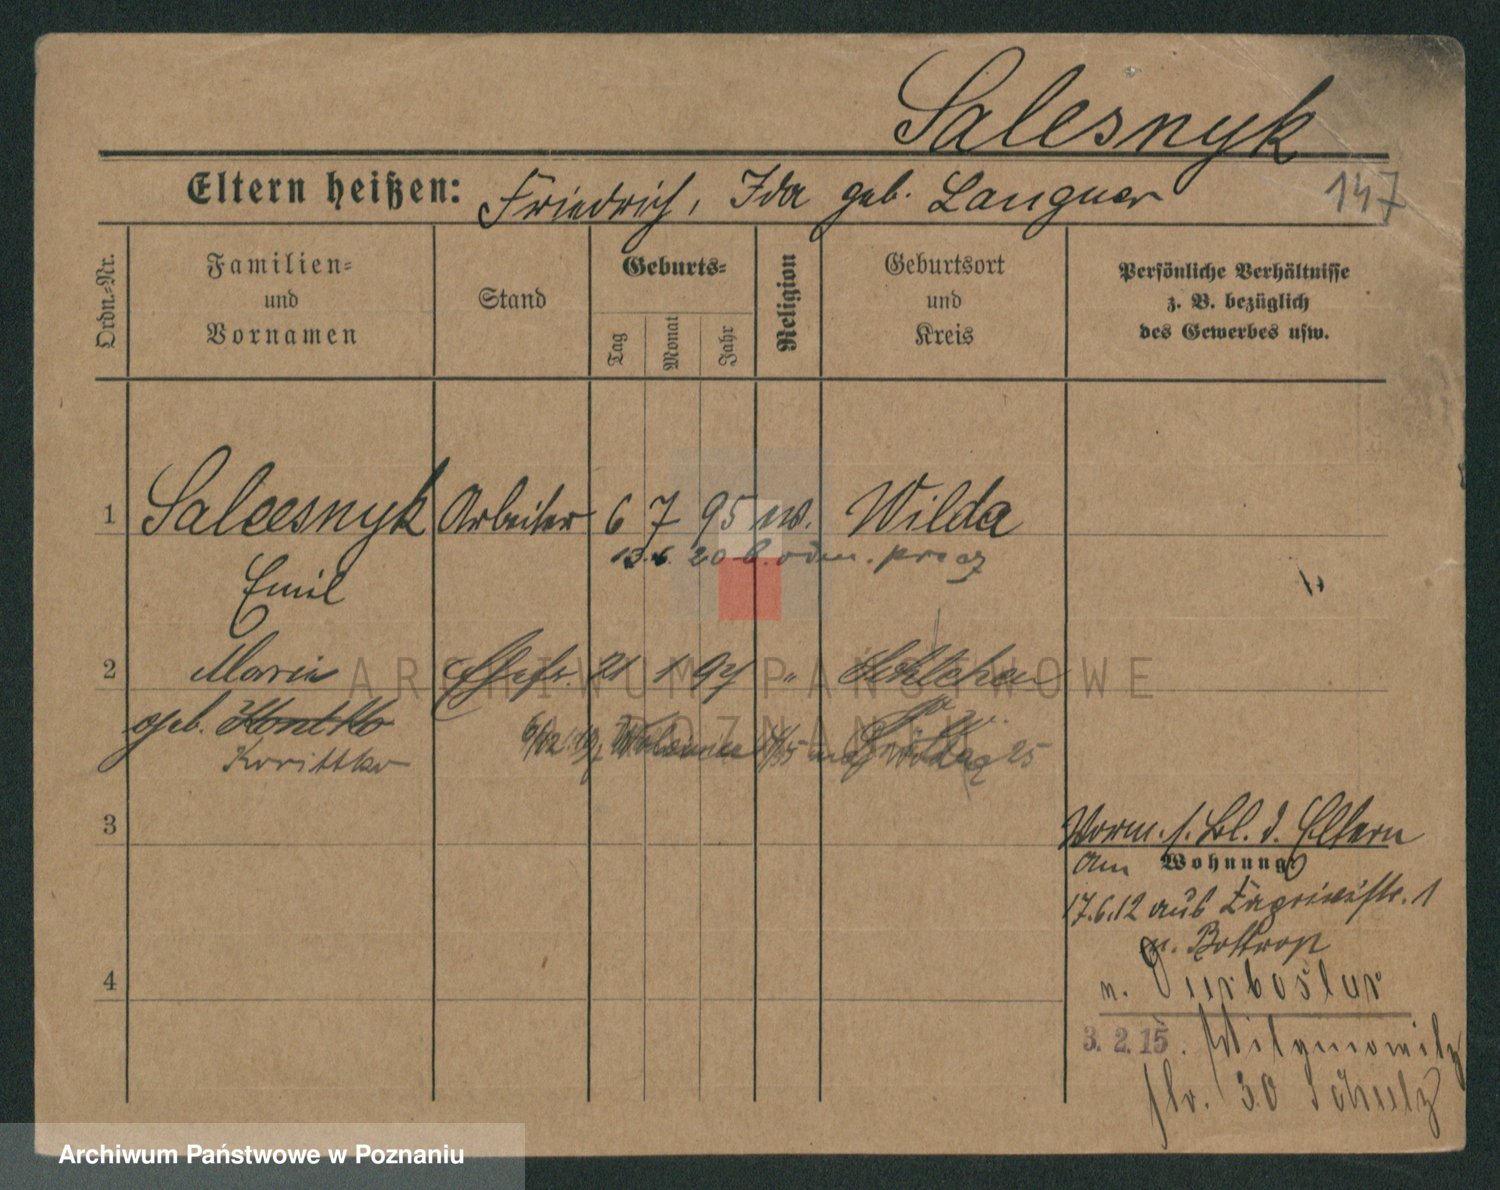 Salesnyk
147
Eltern heißen: Friedrich, Ida geb. Langner
Ordn.-Nr.
Familien-
und
Vornamen
Stand
Geburts-
Tag
Monat
Jahr
Religion
Geburtsort
und
Kreis
Persönliche Verhältnisse
z. B. bezüglich
des Gewerbes usw.
1 Saleesnyk Arbeiter 6 7 95 ev. Wilda
13.6. 20
Emil
2 Marie Ehefr. 21 1 94 "
geb. Kontko
Korittko
3
4
Vorm. s. Bl. d. Eltern
am Wohnung
17.6.12 aus 1
n. Bottrop
n.
3. 2. 15.
str. 30 Schulz
ARCHIWUM PAŃSTWOWE
W POZNANIU
Archiwum Państwowe w Poznaniu